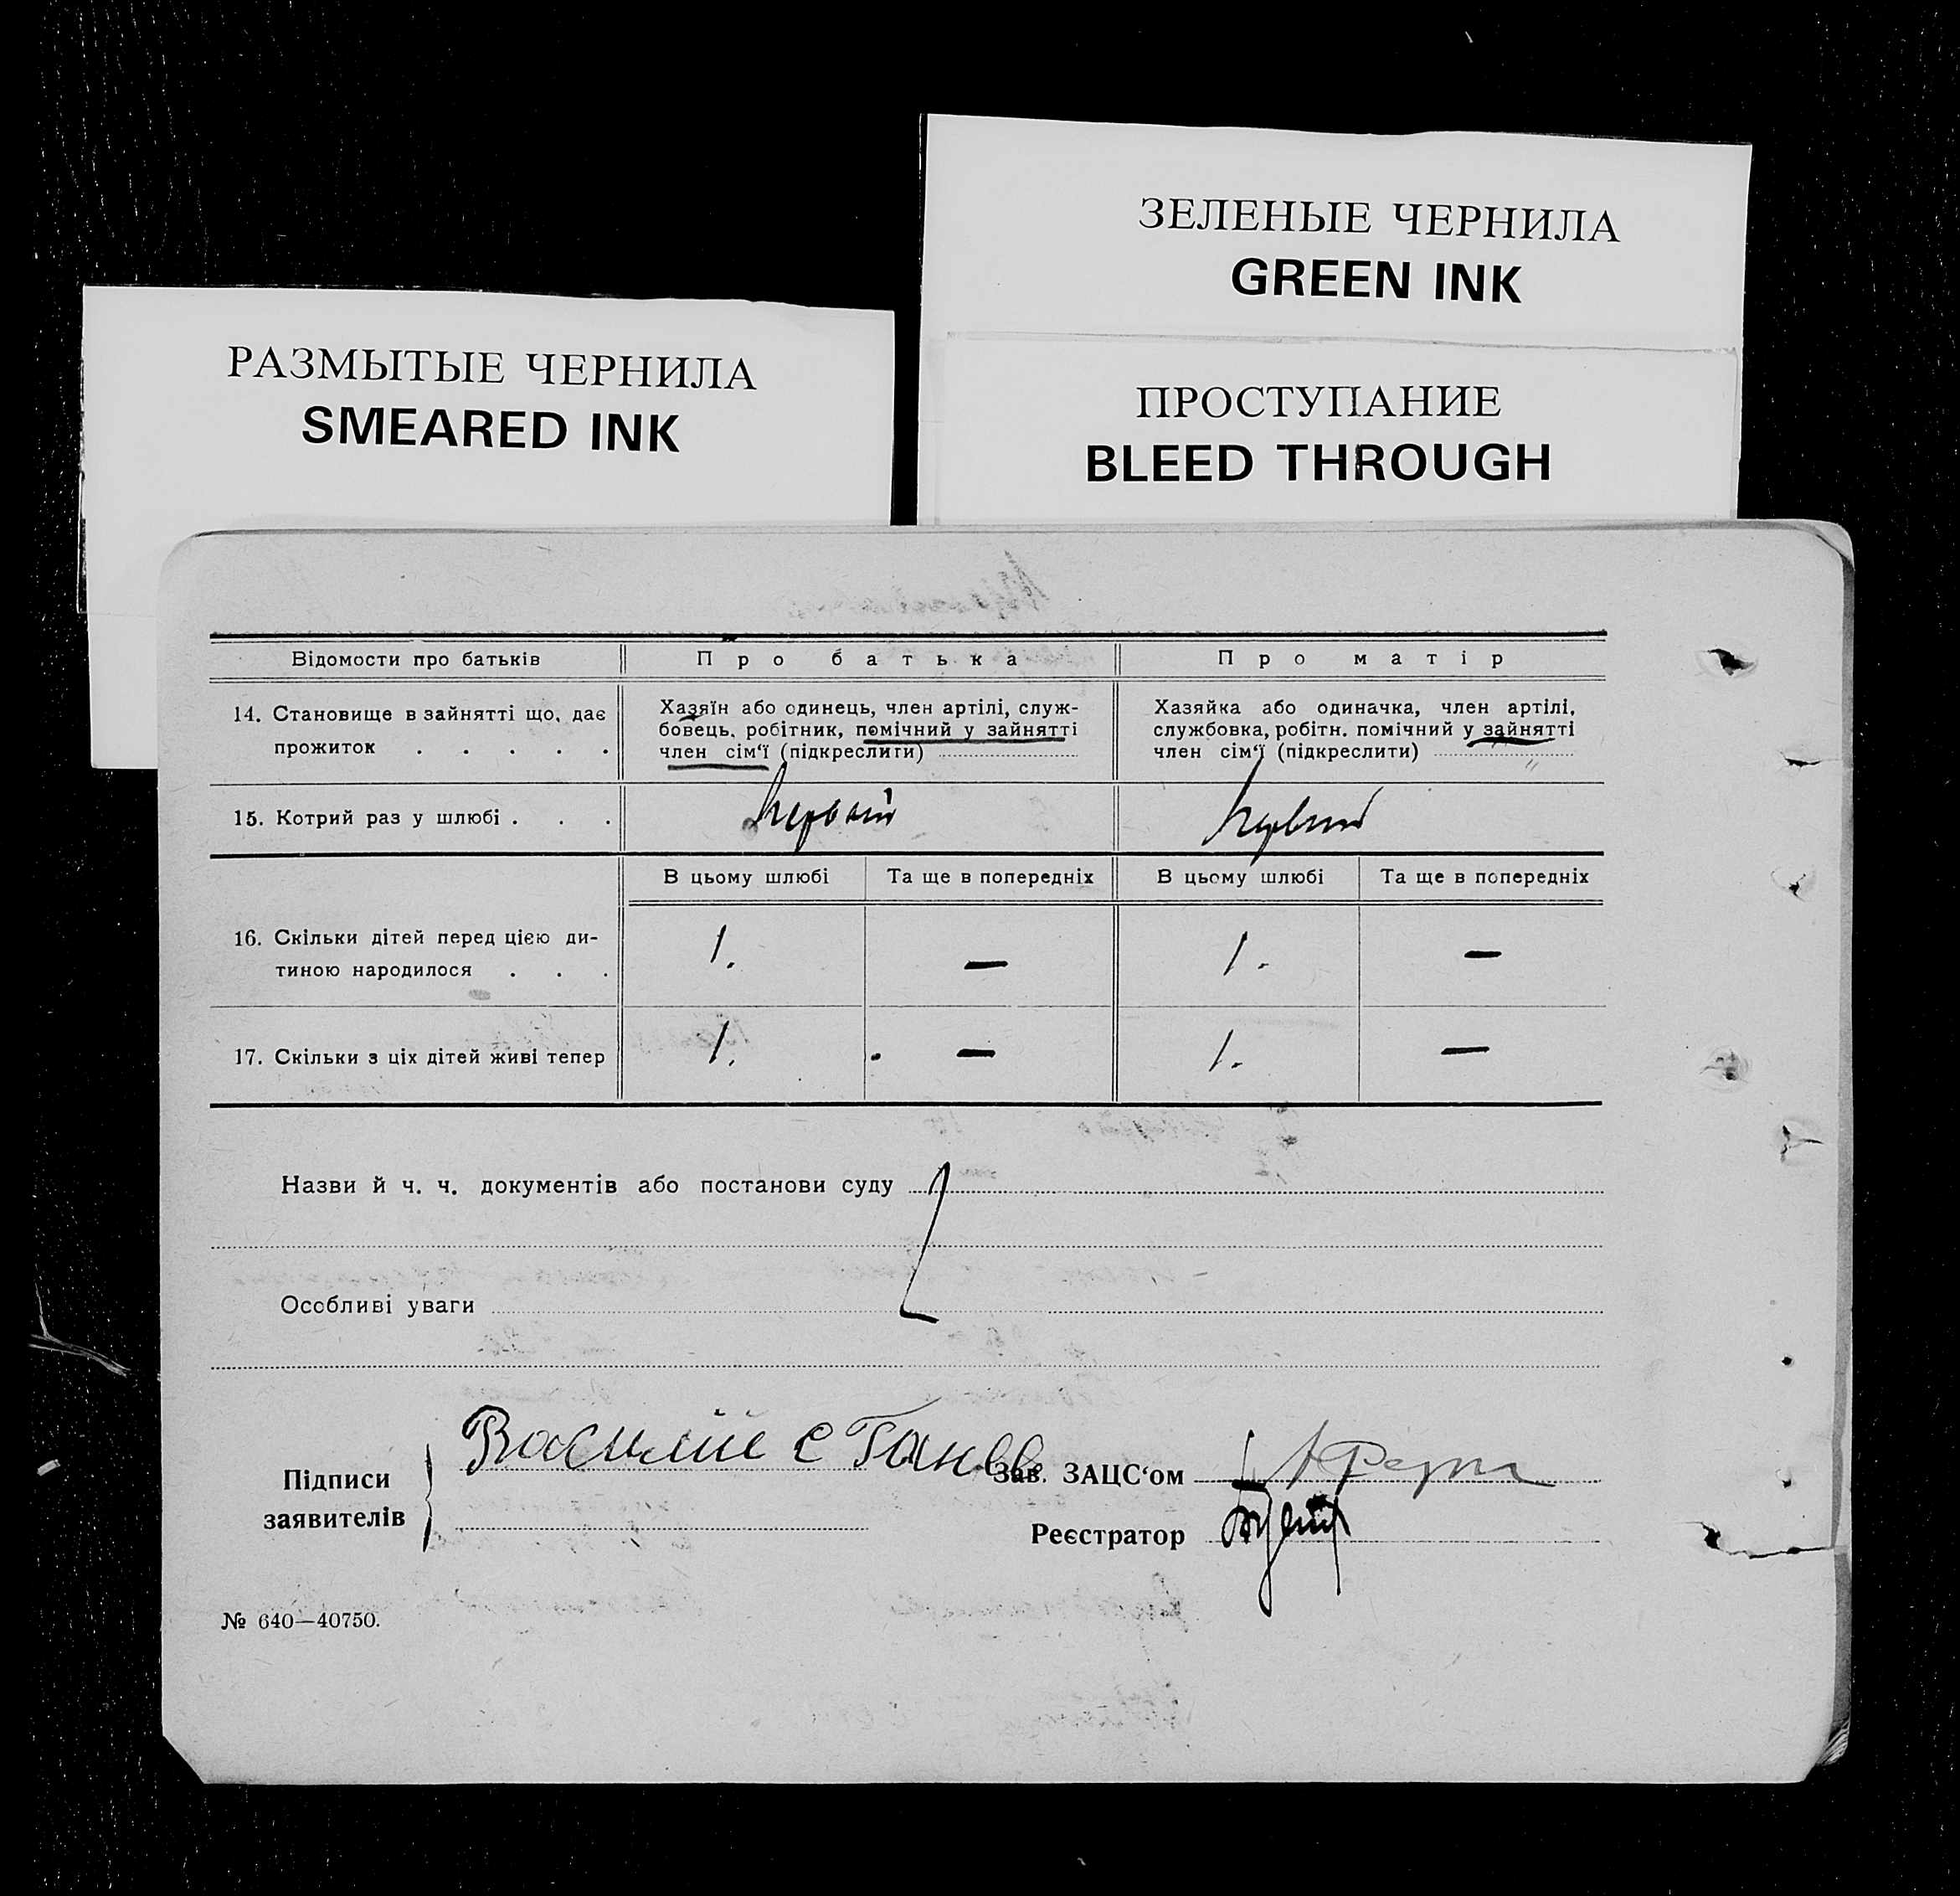 ЗЕЛЕНЫЕ ЧЕРНИЛА
GREEN INK
РАЗМЫТЫЕ ЧЕРНИЛА
SMEARED INK
ПРОСТУПАНИЕ
BLEED THROUGH
Відомости про батьків Про батька Про матір
14. Становище в зайнятті що, дає прожиток . . . . .
Хазяїн або одинець, член артілі, служ-
бовець, робітник, помічний у зайнятті
член сім‘ї (підкреслити)
Хазяйка або одиначка, член артілі,
службовка, робітн. помічний у зайнятті
член сім‘ї (підкреслити)
15. Котрий раз у шлюбі . . . первый первый
В цьому шлюбі Та ще в попередніх В цьому шлюбі Та ще в попередніх
16. Скільки дітей перед цією ди-
тиною народилося . . . 1. — 1. —
17. Скільки з ціх дітей живі тепер 1. — 1. —
Назви й ч. ч. документів або постанови суду
Особливі уваги
Підписи
заявителів
Василий
Зав. ЗАЦС‘ом
Реєстратор
№ 640—40750.